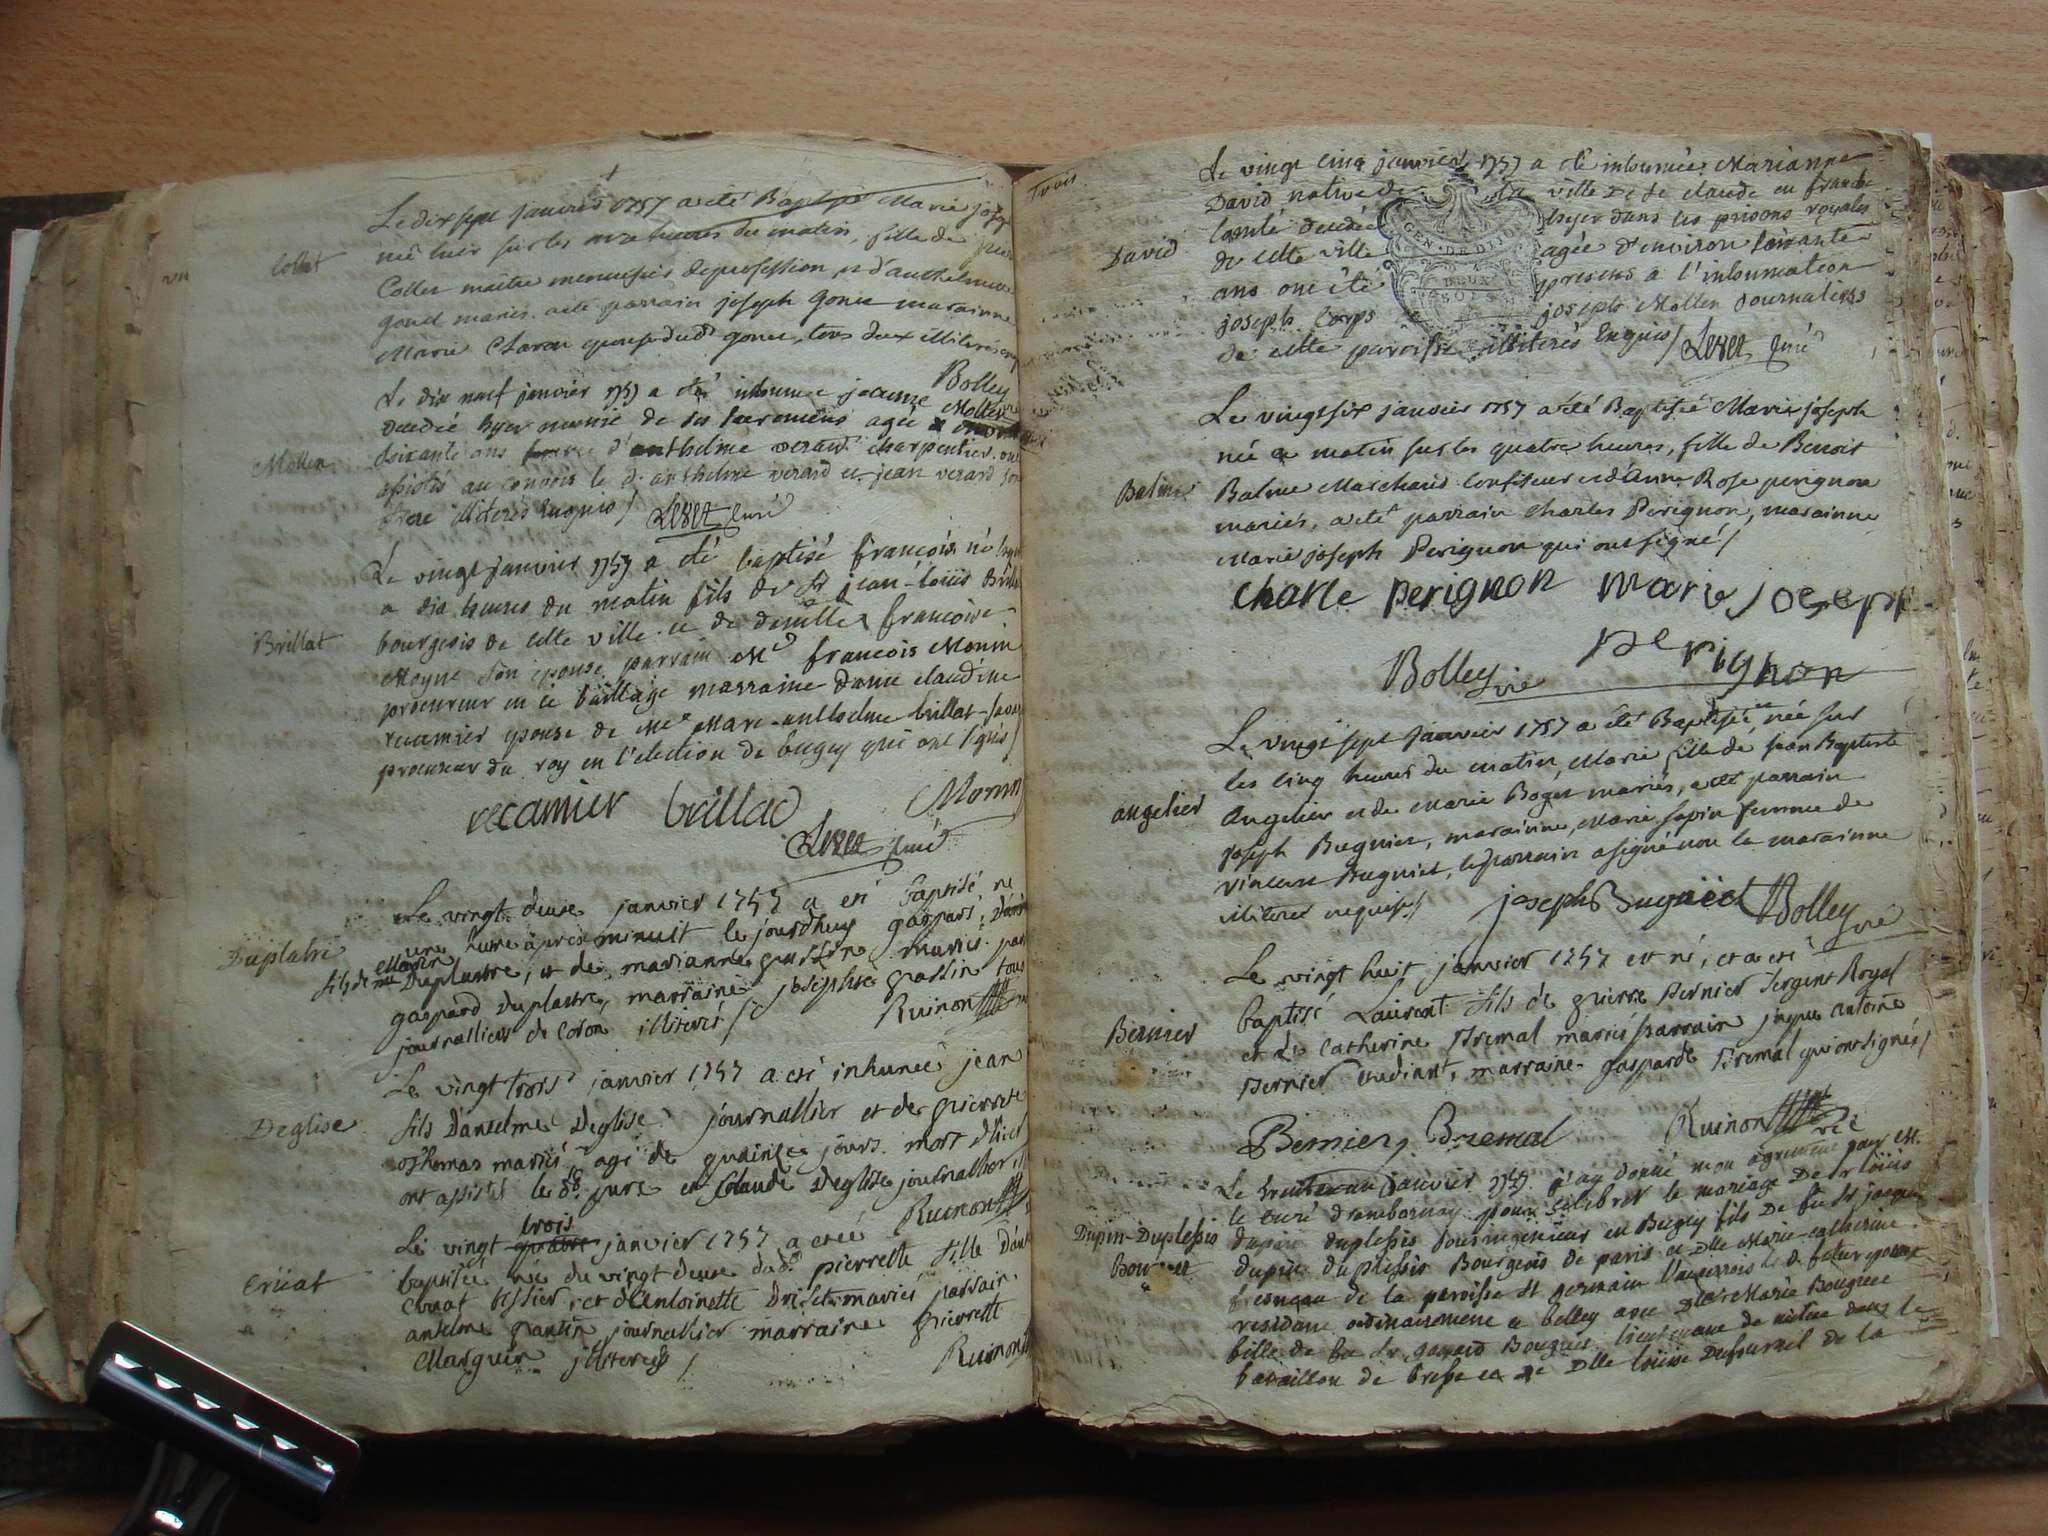 Collet
Le dix sept janvier 1757 a été Baptisé Marie josep
née hier sur les onze heures du matin, fille de pierre
Collet maitre menuisier de profession, et d'anthelmette
gonet mariés. a été parrain joseph Gonet maraine
Marie Charon epouse dud. gonet, tous deux illiterés enq
Bolley
Mollen
Le dix neuf janvier 1757 a été inhumée jeanne Mollen
decedée hyer munie de ses sacremens agée
soixante ans d'anthelme verard charpentier. ont
assistés au convois le d. anthelme verard et jean verard son
frere illiterés Enquis/ Levet curé
Brillat
Le vingt janvier 1757 a été baptisé françois né
a dix heures du matin fils de Sr jean-loüis Brillat
bourgeois de cette ville et de demlle françoise
Moyne son epouse parrain Me francois Monin
procureur en ce bailliage marraine dame claudine
recamier epouse de me Marc-anthelme brillat-
procureur du roy en l'election de bugey qui ont signés/
recamier brillat Monin
Levet curé
Duplatre
Le vingt deux janvier 1757 a eté baptisé né
une heure après minuit le jourdhuy gaspard,
fils de Marin Duplastre, et de marianne passin mariés. par
gaspard duplastre, marraine josephte passin tous
journalliers de Coron illiterés/ Ruinon
Deglise
Le vingt trois janvier 1757 a eté inhumée jean
fils D'anselme Deglise journallier et de pierrete
Thomas mariés, agé de quainze jours. mort d'hier
ont assistés le d. pere et Claude Deglise journallier
Ruinon
Crüat
trois
Le vingt quatre janvier 1757 a eteé
baptisée née du vingt deux dud. pierrette fille
Cruat tissier, et d'Antoinette mariés parrain
anselme pantin journallier marraine pierrette
Marguin illiterés/ Ruinon
Trois
David
Le vingt cinq janvier 1757 a été inhumée Marianne
David native de la ville de St claude en franche
Comté decedée hyer dans les prisons royales
de cette ville agée d'environ soixante
ans ont été presens a l'inhumation
joseph Corps joseph Mollen Journaliers
de cette paroisse illiterés Enquis/ Levet curé
GEN. DE DIJON
DEUX
SOLS
Balme
Le vingt six janvier 1757 a été Baptisée Marie joseph
née ce matin sur les quatre heures, fille de Benoit
Balme Marchand Confiseur et d'Anne Rose perignon
mariés, a été parrain Charles Perignon, maraine
Marie joseph Perignon qui ont signé/
charle perignon marie joseph
perignon
Bolley vic
angelier
Le vingt sept janvier 1757 a été Baptisée née sur
les cinq heures du matin, Marie fille de jean Baptiste
Angelier et de Marie Boget mariés, a été parrain
joseph Buguiet, maraine, Marie sapin femme de
vincent Buguiet, le parrain a signé non la maraine
illiterée enquise/ joseph Buguiet Bolley vic
Bernier
Le vingt huit janvier 1757 est né, et a eté
baptisé Laurent fils de pierre Bernier sergent Royal
et de Catherine Bremal mariés parrain jaque antoine
Bernier étudiant, marraine gasparde Bremal qui ont signés/
Bernier, Bremal Ruinon vic
Dupin-Duplessis
Bouquet
Le trente un janvier 1757 j'ay donné mon agrement pour M.
le curé d'ambornay pour célébrer le mariage de Sr loüis
dupin duplessis sousingenieur en Bugey fils de feu Sr jacques
dupin duplessis Bourgeois de paris et Dlle Marie-catherine
fresneau de la paroisse St germain l'auxerrois le d. futur epoux
residant ordinairement a belley avec Dlle Marie Bouquet
fille de feu Sr gaspard Bouquet lieutenant de milice dans le
bataillon de bresse et de Dlle loüise Dufournel de la